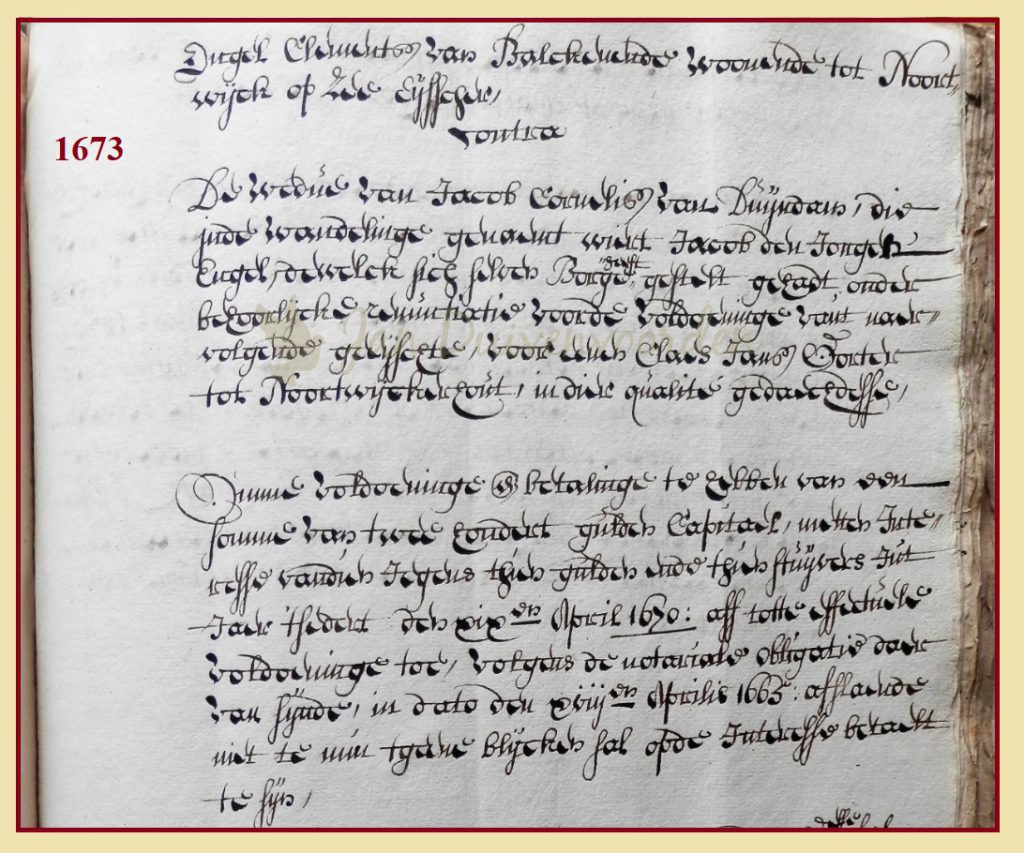 Engel Clements van Valckevende woonende tot Noort-
wyck op Zee Eysscher,
contra
1673
De wedue van Jacob Cornelis van Duyndam, die
inde wandelinge genaemt wiert Jacob den Jongen
Engel, dewelck sich selven Borge heeft gestelt gehadt, onder
behoorlycke renuntiatie voorde voldoeninge vant naer-
volgende geeyschte, voor eenen Claes Jans Gorter
tot Noortwyckerhout, in dier qualite gedaechdesse,
Omme voldoeninge & betalinge te hebben van een
somme van twee hondert gulden Capitael, metten Inte-
resse vandien Jegens thien gulden ende thien stuyvers Int
Jaer tsedert den xixen April 1670: aff totte effectuele
voldoeninge toe, volgens de notariale obligatie daer
van synde, in dato den xviijen Aprilis 1665: afslaende
niet te min tgene blycken sal opde Interesse betaelt
te syn,